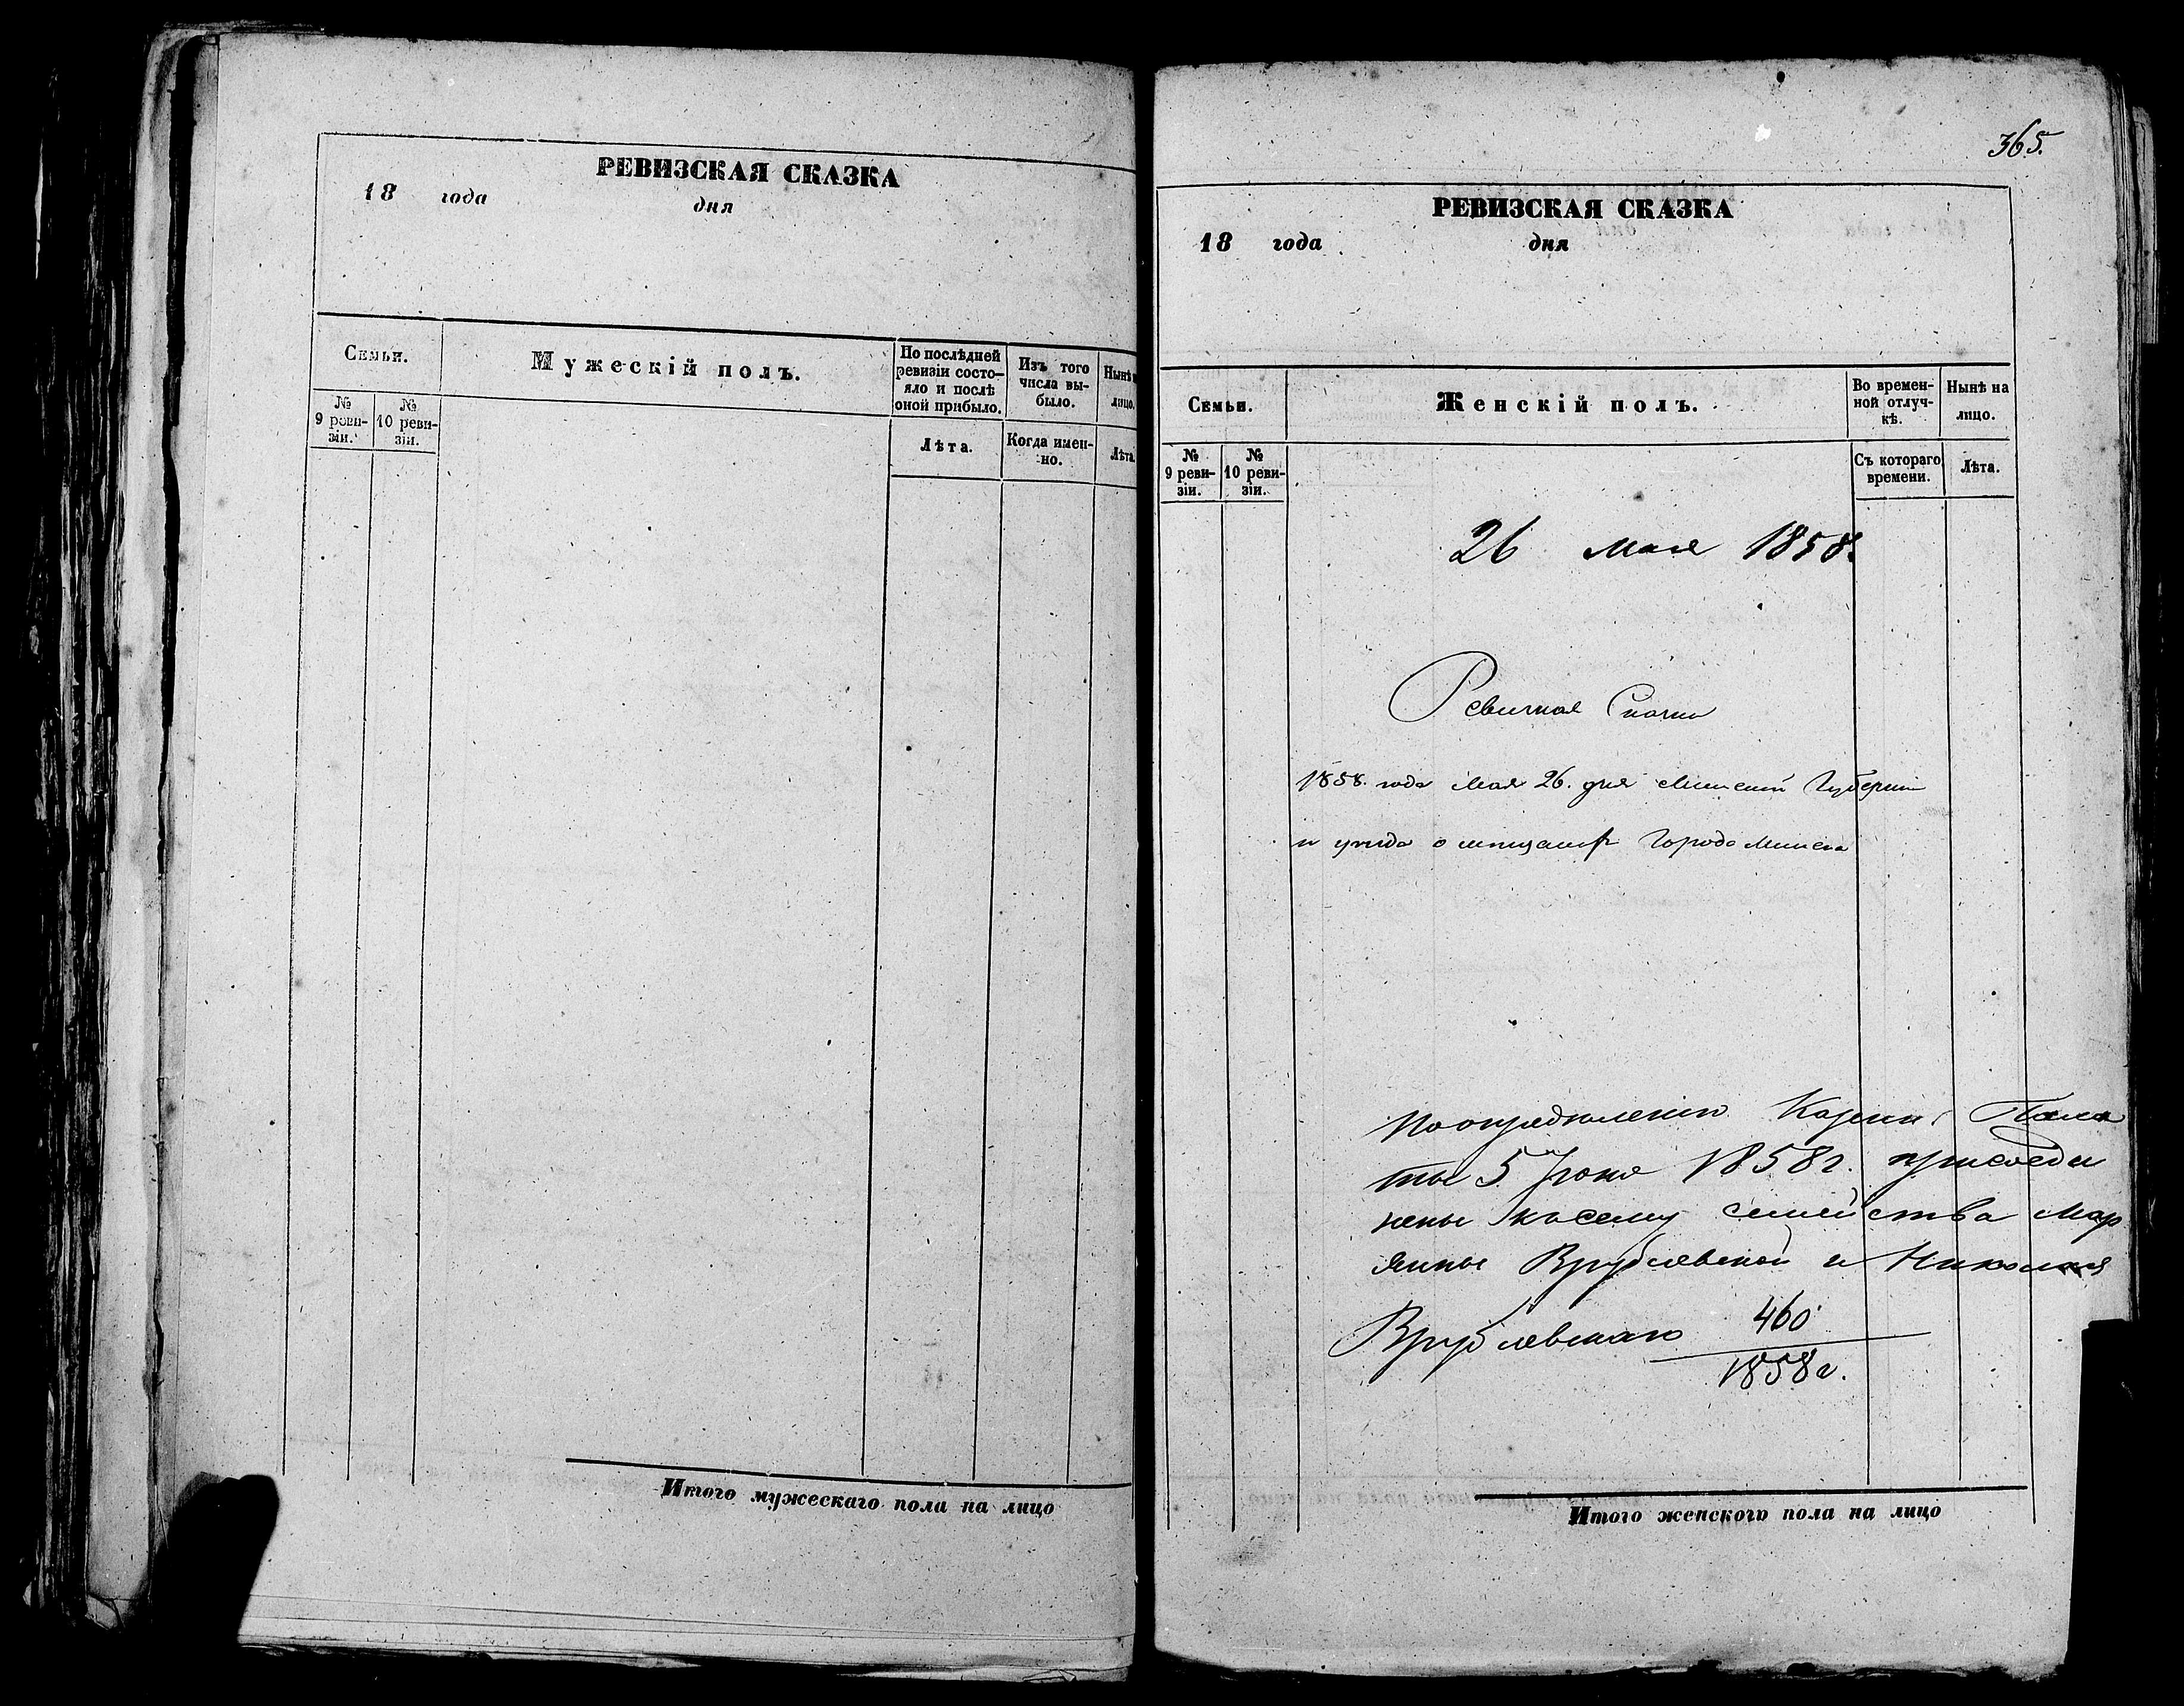 РЕВИЗСКАЯ СКАЗКА
18 года дня
Семьи.
Мужескій полъ.
По послѣдней ревизіи состо-
яло и послѣ
оной прибыло.
Изъ того
числа вы-
было.
Нынѣ
лицо.
№
9 реви-
зіи.
№
10 реви-
зіи.
Лѣта.
Когда имен-
но.
Лѣта.
Итого мужескаго пола на лицо
365.
РЕВИЗСКАЯ СКАЗКА
18 года дня
Семьи.
Женскій полъ.
Во времен-
ной отлуч-
кѣ.
Нынѣ на
лицо.
№
9 реви-
зіи.
№
10 реви-
зіи.
Съ котораго
времени.
Лѣта.
26 Мая 1858.
Ревизная Сказка
1858. года Мая 26. дня Минской Губерніи
и уѣзда о мѣщанахъ Города Минска
По опредѣленію Казен: Пала
ты 5 Іюня 1858 г. присоеди
нены къ сему семейства Мар
янны Врублевской и Николая
Врублевскаго 460
1858 г.
Итого женского пола на лицо